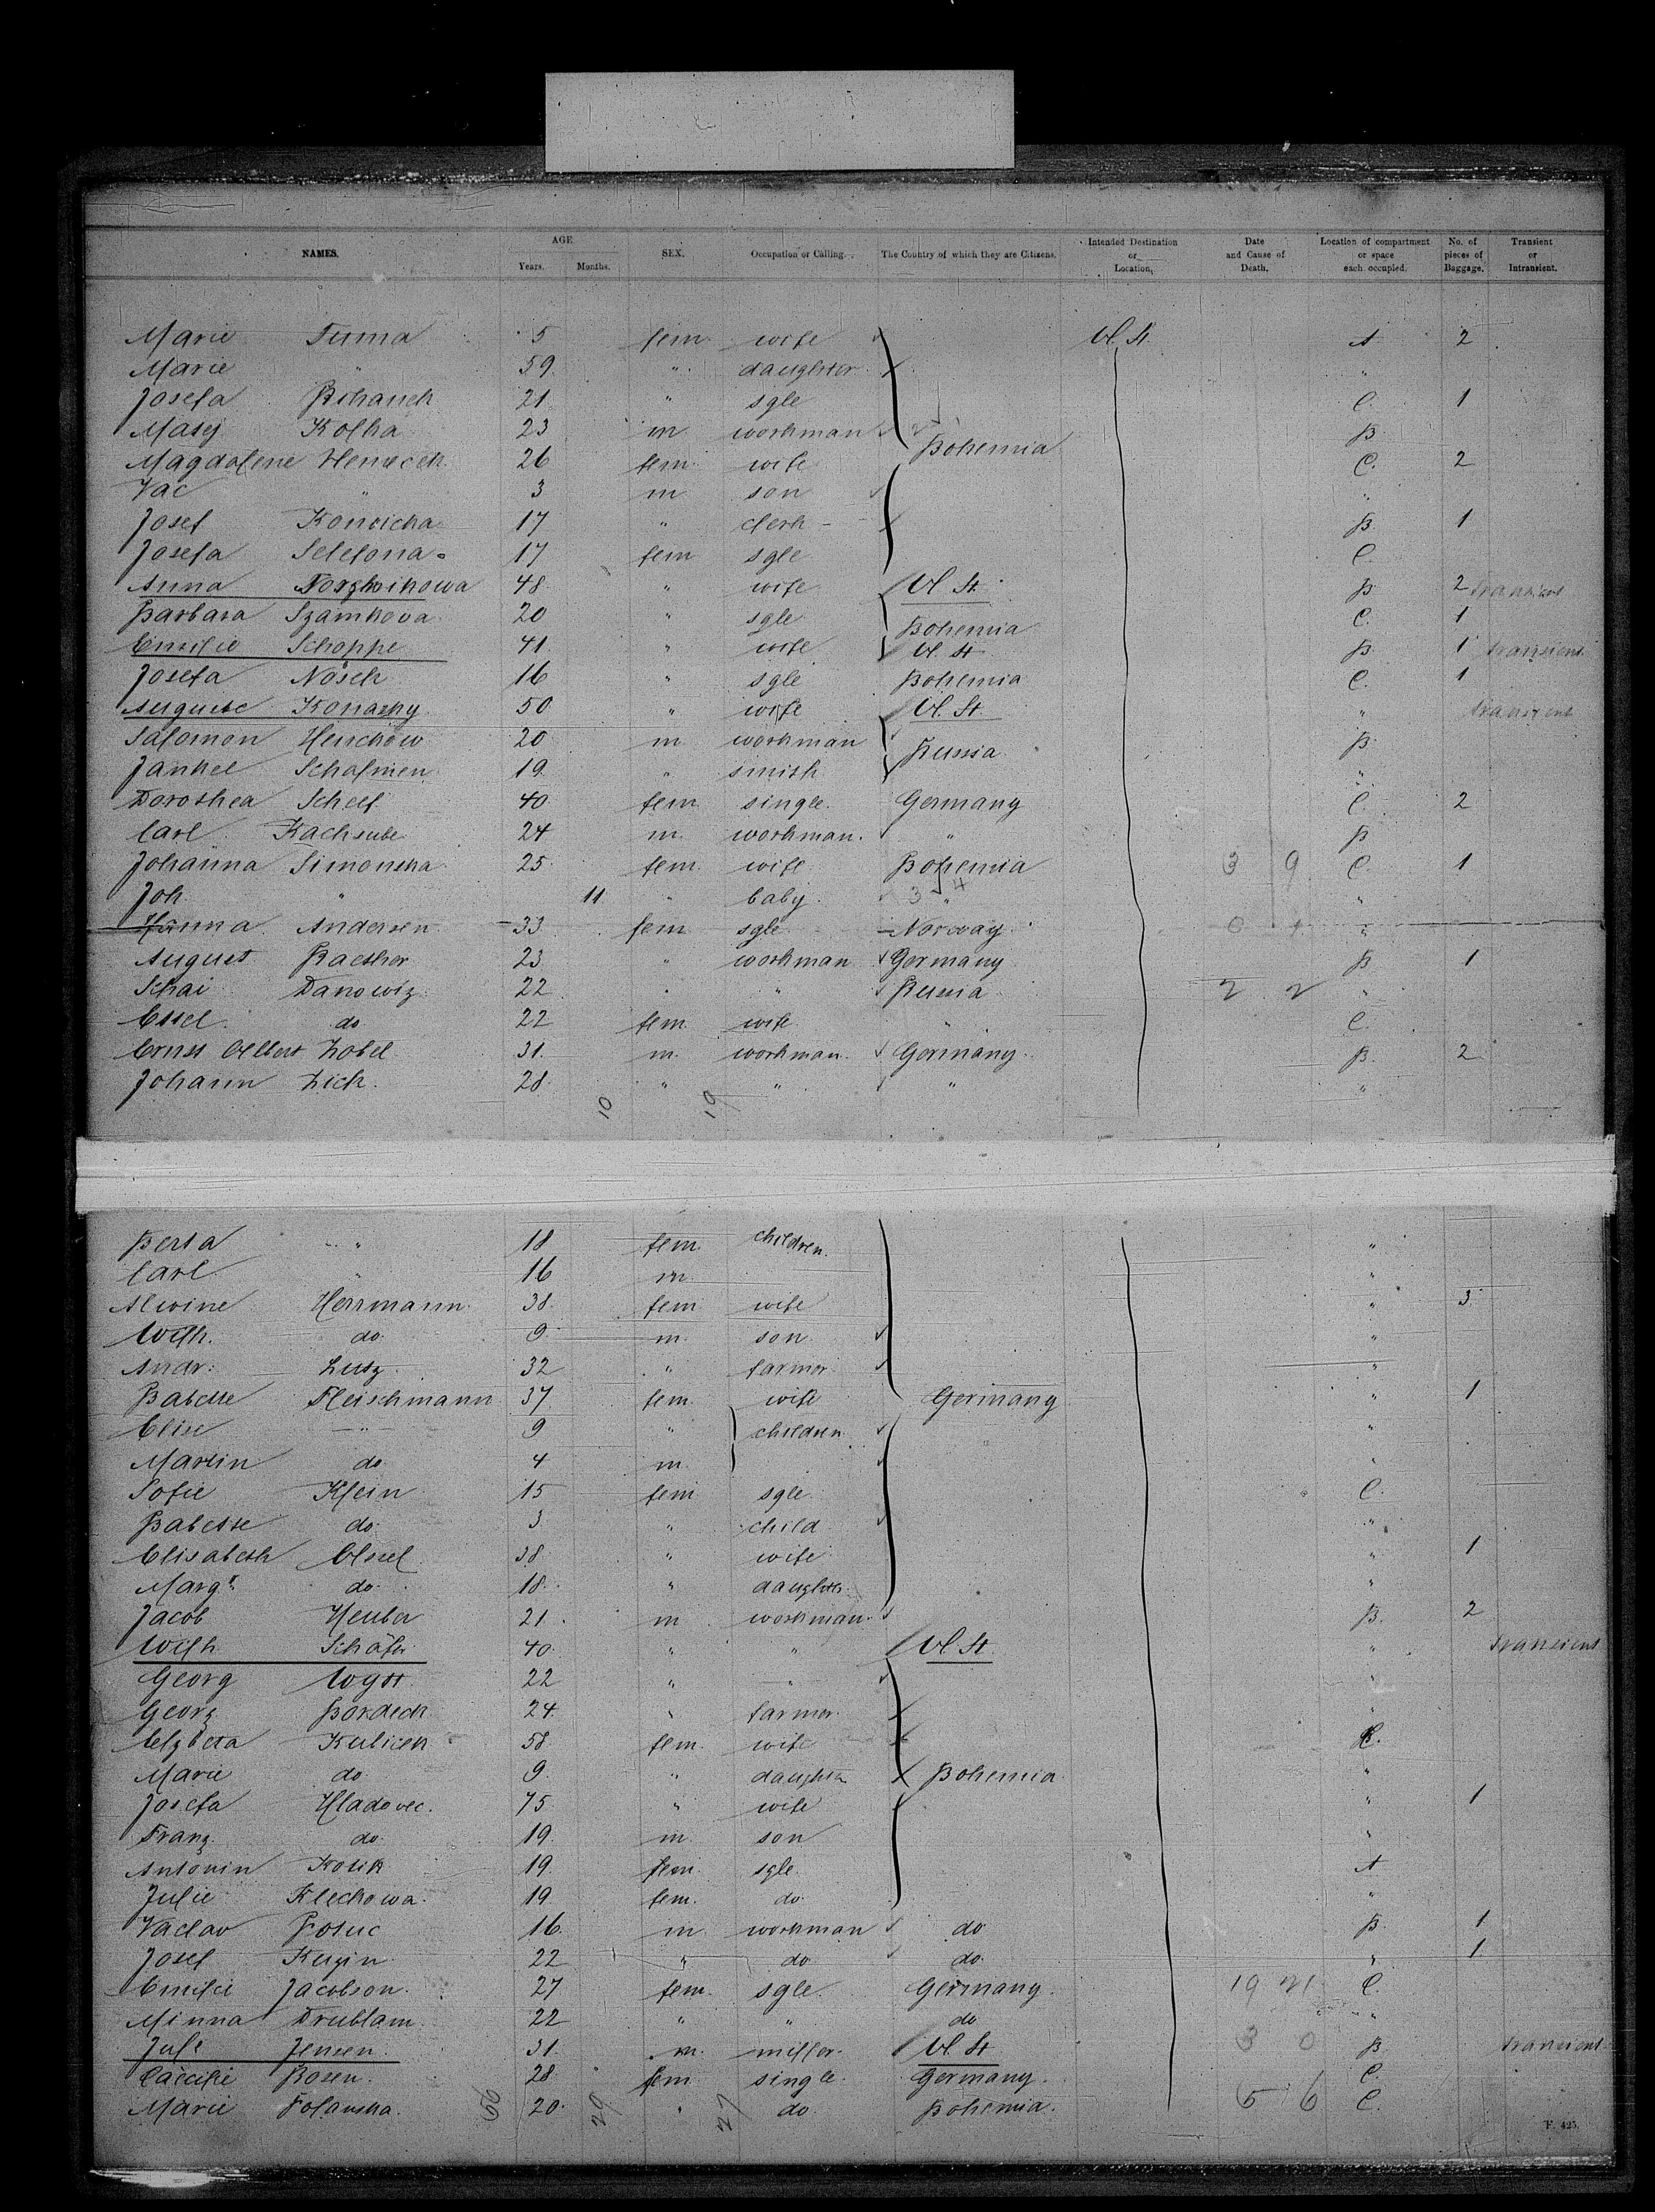 NAMES. AGE Years. Months. SEX. Occupation or Calling. The Country of which they are Citizens. Intended Destination or Location, Date and Cause of Death. Location of compartment or space each occupied. No. of pieces of Baggage. Transient or Intransient.
Marie Tuma 5 fem wife U. St. A 2
Marie " 59 " daughter "
Josefa 21 " sgle C. 1
Matej Kolka 23 m workman Bohemia B
Magdalene Nemecek 26 fem wife C. 2
Vac " 3 m son "
Josef Konvicka 17 " clerk B 1
Josefa 17 fem sgle C.
Anna 48 " wife U. St. B 2 transient
Barbara Szamkova 20 " sgle Bohemia C. 1
Emilie Schoppe 41 " wife U. St B 1 transient
Josefa 16 " sgle Bohemia C. 1
Auguste 50 " wife U. St. " transient
Salomon 20 m workman Russia B
Jankel 19 " smith "
Dorothea Scheef 40 fem single Germany C. 2
Carl 24 m workman " B
Johanna Simonska 25 fem wife Bohemia 3 9 C. 1
Joh. " 11 " baby 3 4 " "
Hanna Andersen 33 fem sgle Norway "
August 23 " workman Germany B 1
Schai Danowiz 22 " " Russia 2 2 "
Essel do 22 fem wife " C.
Ernst Albert Zobel 31 m workman Germany B. 2
Johann Zick 28 " " " "
10 19
Berta " 18 fem children "
Carl " 16 m "
Alwine Herrmann 38 fem wife " 3
Wilh. do 9 m son "
Andr. Lutz 32 " farmer "
Babette Fleischmann 37 fem wife Germany " 1
Elise " 9 " children "
Martin do 4 m "
Sofie Klein 15 fem sgle C.
Babette do 3 " child "
Elisabeth 38 " wife " 1
Margt. do 18 " daughter "
Jacob Heuber 21 m workman B. 2
Wilh Schäfer 40 " " U. St " transient
Georg Vogtt 22 " " "
Georg Bordech 24 " farmer "
Elzbeta Kulicek 58 fem wife C.
Marie do 9 " daughter Bohemia "
Josefa Hladovec. 75 " wife " 1
Franz do 19 m son "
Antonin Kosik 19 fem sgle A
Julie Klechowa 19 fem. do "
Vaclav 16 m workman do B 1
Josef 22 " do do " 1
Emilie Jacobson 27 fem sgle Germany 19 21 C.
Minna Drublam 22 " " do "
Juls Jensen 31 m. miller U. St 3 0 B transient
Caecilie Bosen 28 fem single Germany C.
Marie 20 " do Bohemia 5 6 C.
56 29 27
F. 425.